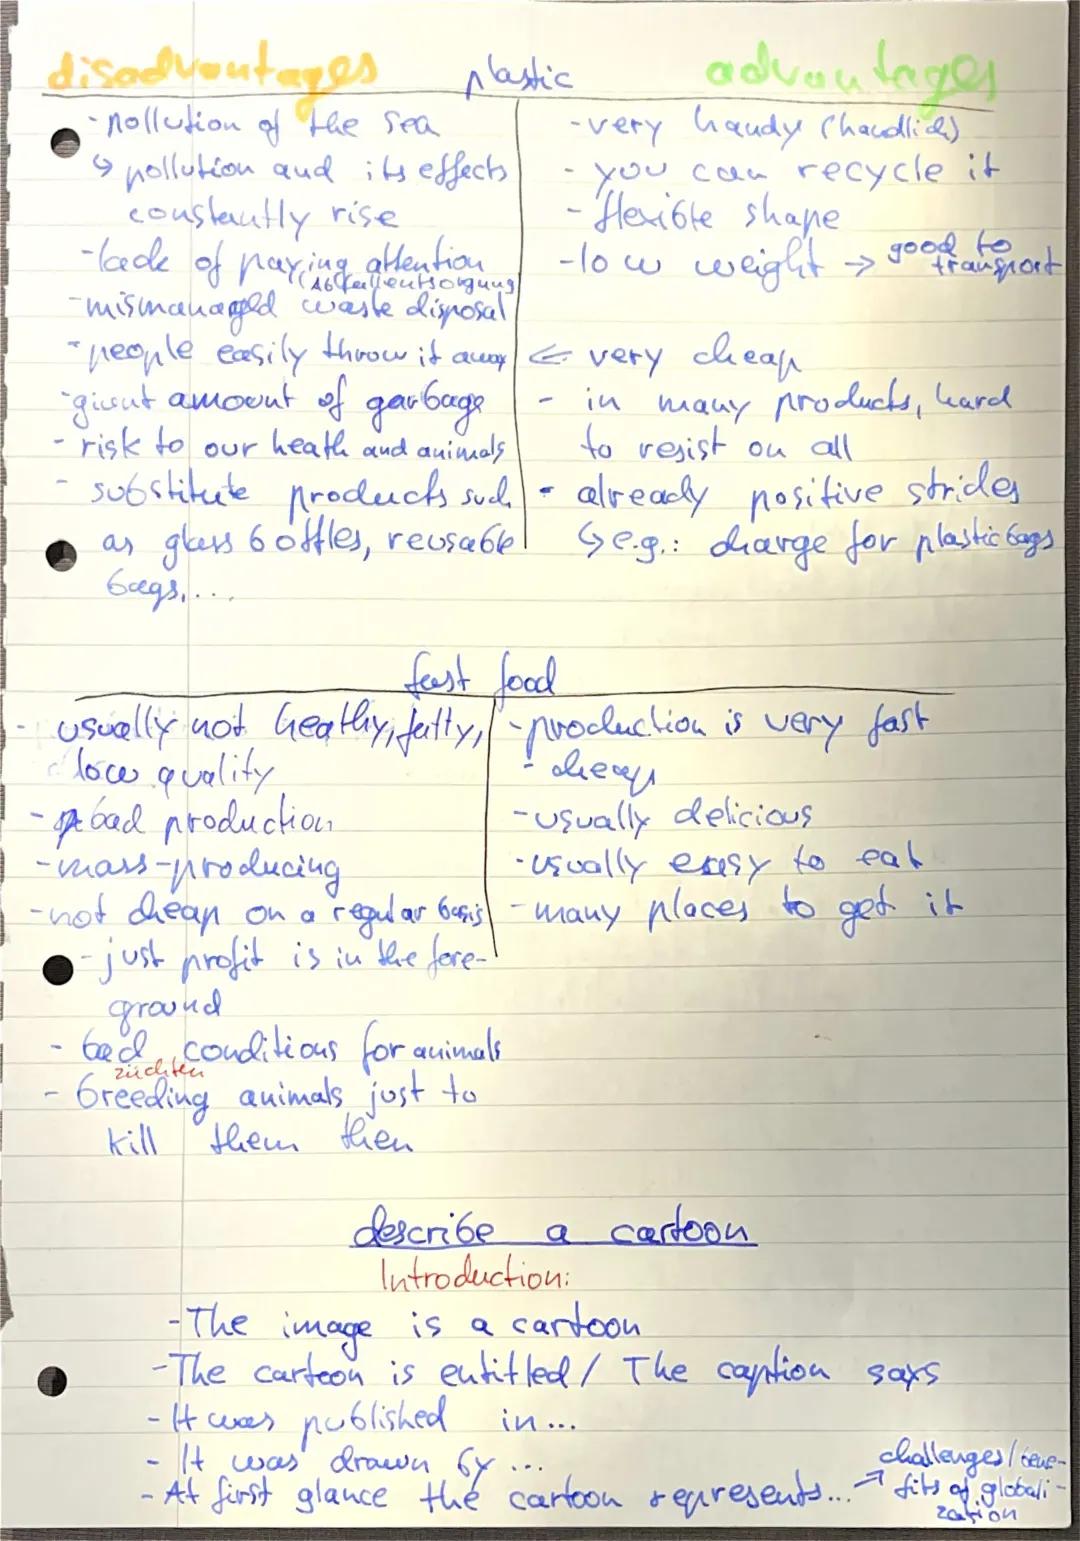 disadvantages plastic advantages
- pollution of the sea
↳ pollution and its effects
constantly rise
- lack of paying attention
(Abfallentsorgung)
- mismanaged waste disposal
- people easily throw it away
- giant amount of garbage
- risk to our heath and animals
- substitute products such
as glass bottles, reusable
bags,...
- very handy (handlich)
- you can recycle it
- flexible shape
- low weight → good to
transport
← very cheap
- in many products, hard
to resist on all
- already positive strides
↳ e.g.: charge for plastic bags
fast food
- usually not heathy, fatty,
low quality
- bad production
- mass-producing
- not cheap on a regular basis
- just profit is in the fore-
ground
- bad conditions for animals
züchten
- breeding animals just to
kill them then
- production is very fast
- cheap
- usually delicious
- usually easy to eat
- many places to get it
describe a cartoon
Introduction:
- The image is a cartoon
- The cartoon is entitled / The caption says
- It was published in...
- It was drawn by ...
- At first glance the cartoon represents... → challenges / bene-
fits of globali-
zation